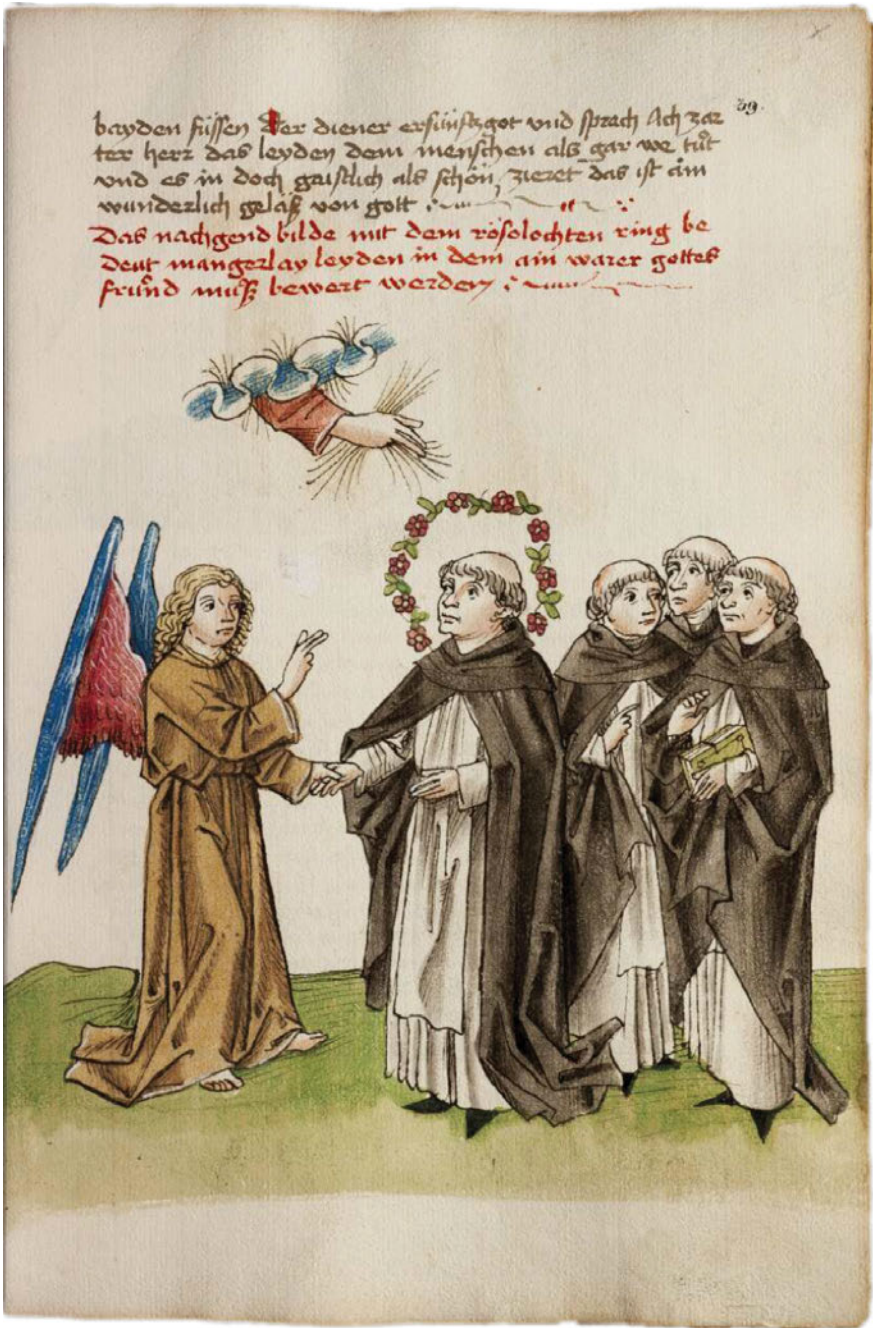 69.
bayden füssen Der diener ersünfftzgot vnd sprach Ach zar
ter herr das leyden dem menschen als gar we tůt
vnd es in doch gaistlich als schön zieret das ist ain
wunderlich geläß von gott
Das nachgend bilde mit dem rosolochten ring be
deut mangerlay leyden in dem ain warer gottes
fründ muß bewert werden